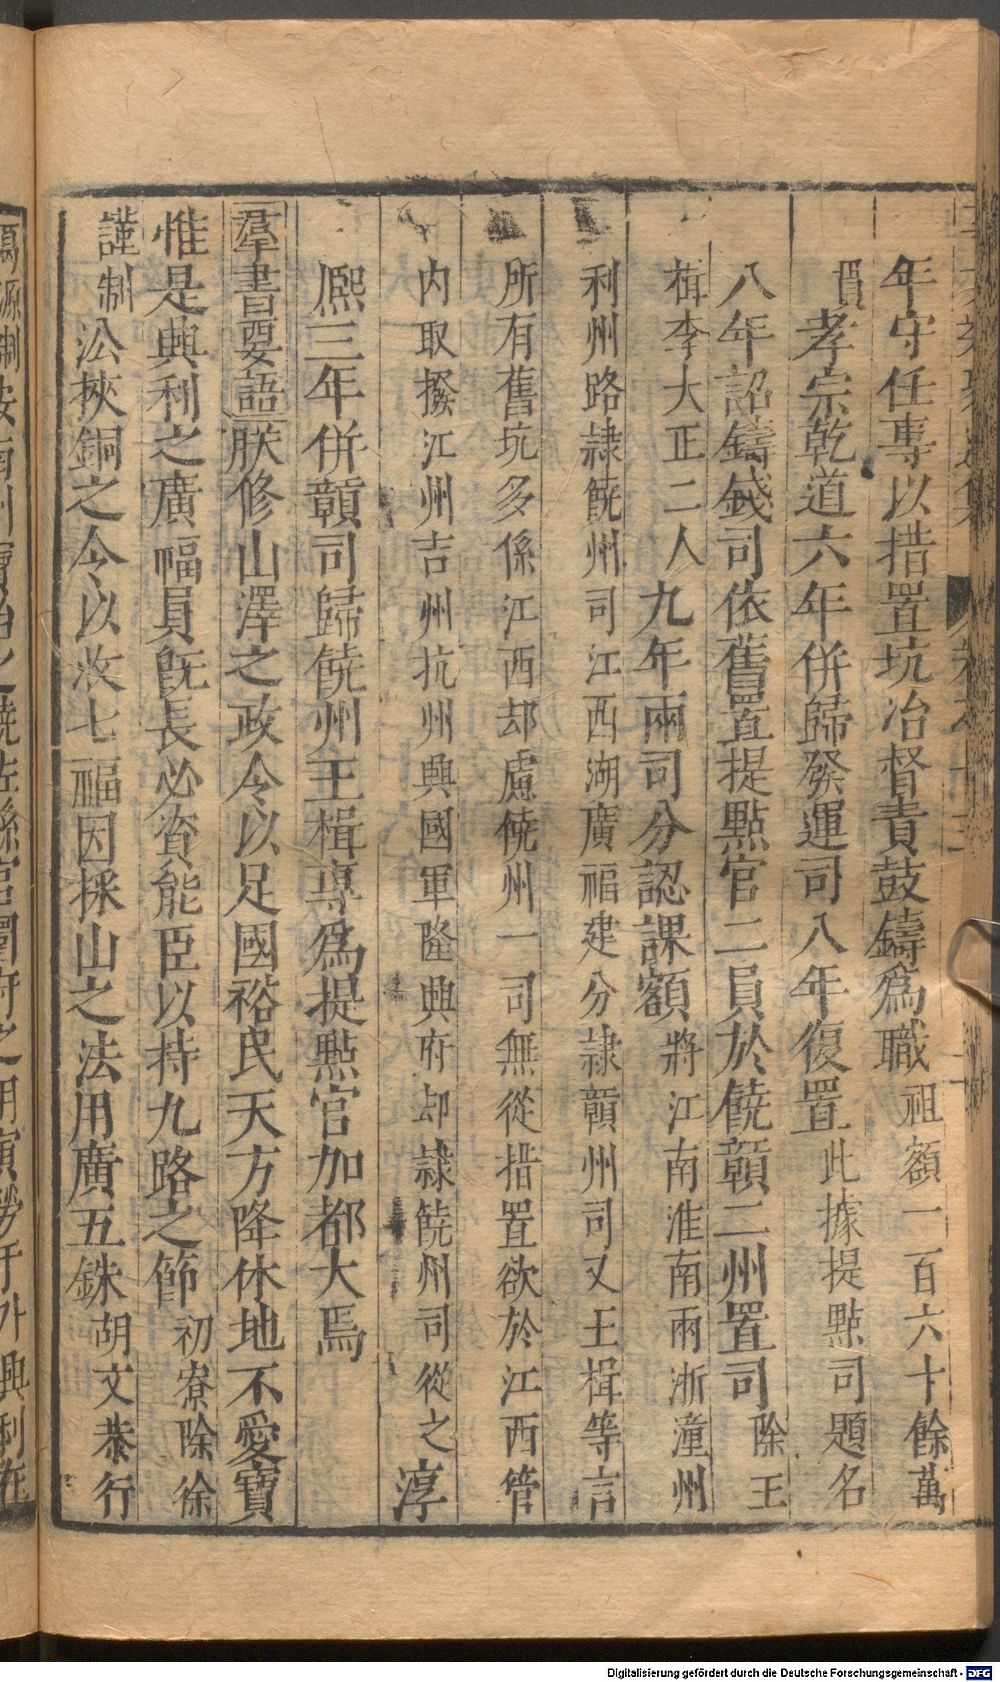 年守任專以措置坑冶督責鼓鑄爲職祖額一百六十餘萬
貫孝宗乾道六年併歸發運司八年復置此據提點司題名
八年詔鑄錢司依舊置提點官二員於饒贛二州置司除王
楫李大正二人九年兩司分認課額將江南淮南兩浙潼州
利州路隷饒州司江西湖廣福建分隷贛州司又王楫等言
所有舊坑多係江西却慮饒州一司無從措置欲於江西管
内取撥江州吉州抗州興國軍隆興府却隷饒州司從之淳
熈三年併贛司歸饒州王楫專爲提點官加都大焉
羣書要語朕修山澤之政令以足國裕民天方降休地不愛寶
惟是興利之廣幅員旣長必資能臣以持九路之節初寮除徐
謹制公挾銅之令以收七福因採山之法用廣五銖胡文恭行
Digitalisierung gefördert durch die Deutsche Forschungsgemeinschaft - DFG